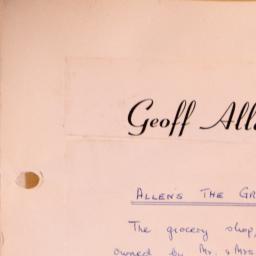 Geoff All
ALLEN'S THE GR
The grocery shop,
owned by Mr. & Mrs